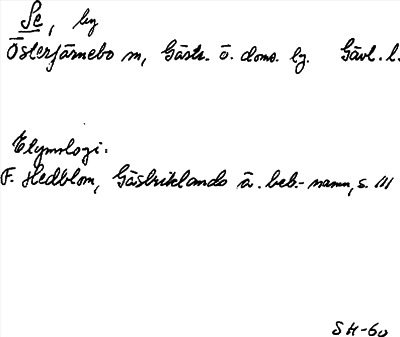 Se, by
Österfärnebo sn, Gästr. ö. doms. hg. Gävl. l.
Etymologi:
F. Hedblom, Gästriklands ä. beb.-namn, s. 111
SH-60